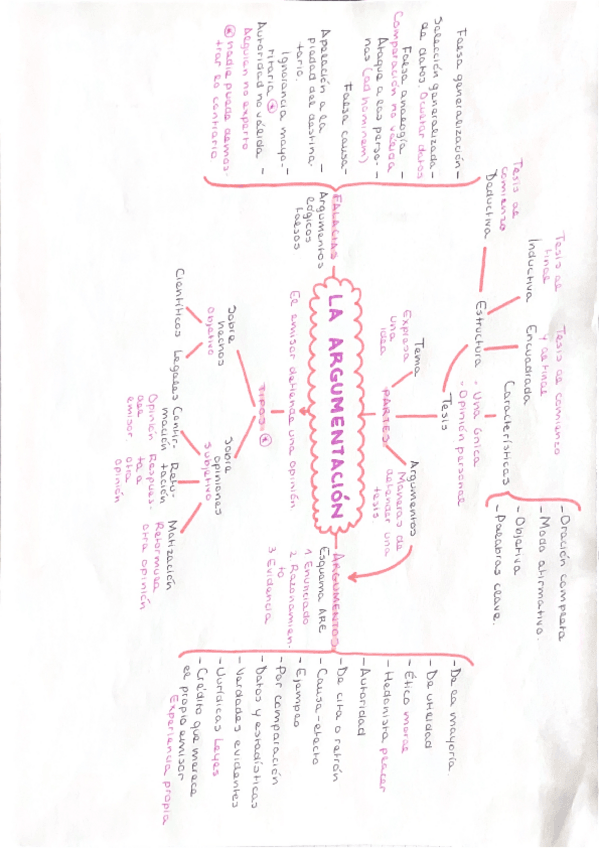 LA ARGUMENTACIÓN
El emisor defiende una opinión
PARTES
Tema
Expresa
una
idea
Tesis
- Una única
- Opinión personal
Estructura
Deductiva
Tesis al
comienzo
Inductiva
Tesis al
final
Encuadrada
Tesis al comienzo
y al final
Características
- Oración completa
- Modo afirmativo.
- Objetiva
- Palabras clave.
Argumentos
Maneras de
defender una
tesis
ARGUMENTOS
Esquema ARE
1 Enunciado
2 Razonamien-
to
3 Evidencia
- De la mayoría.
- De utilidad
- Ético moral
- Hedonista placer
- Autoridad
- De cita o refrán
- Causa-efecto
- Ejemplo
- Por comparación
- Datos y estadísticas
- Verdades evidentes
- Jurídicas Leyes
- Crédito que merece
el propio emisor
Experiencia propia
TIPOS
Sobre
hechos
objetivo
Científicos
Legales
Sobre
opiniones
subjetivo
Confir-
mación
Opinión
del
emisor
Refu-
tación
Respues-
ta a
otra
opinión
Matización
Reformula
otra opinión
FALACIAS
Argumentos
lógicos
falsos
Falsa generalización -
Selección generalizada -
de datos. Ocultar datos
Falsa analogía -
Comparación no válida
Ataque a las perso- -
nas (ad hominem)
Falsa causa -
Apelación a la -
piedad del destina-
tario.
Ignorancia mayo- -
ritaria *
Autoridad no válida -
Alguien no experto
* nadie puede demos-
trar lo contrario